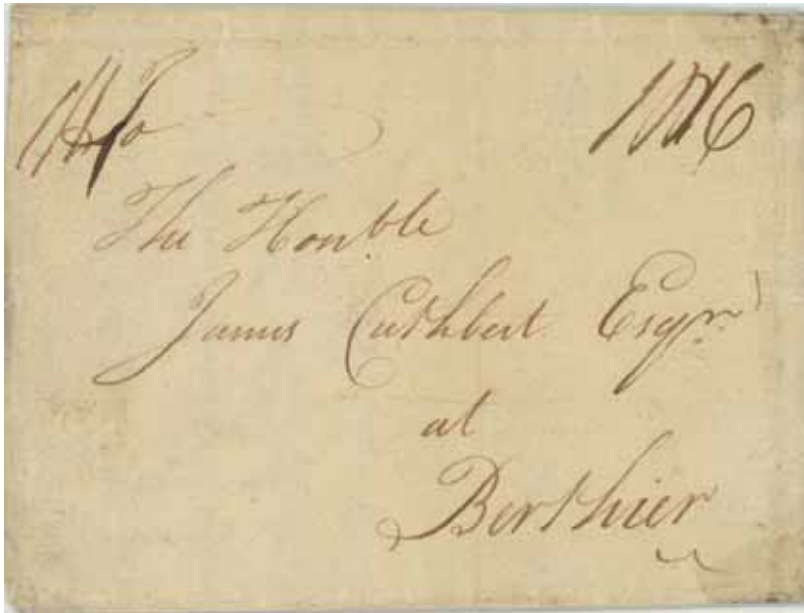 The Honble
James Cuthbert Esqr
at
Berthier